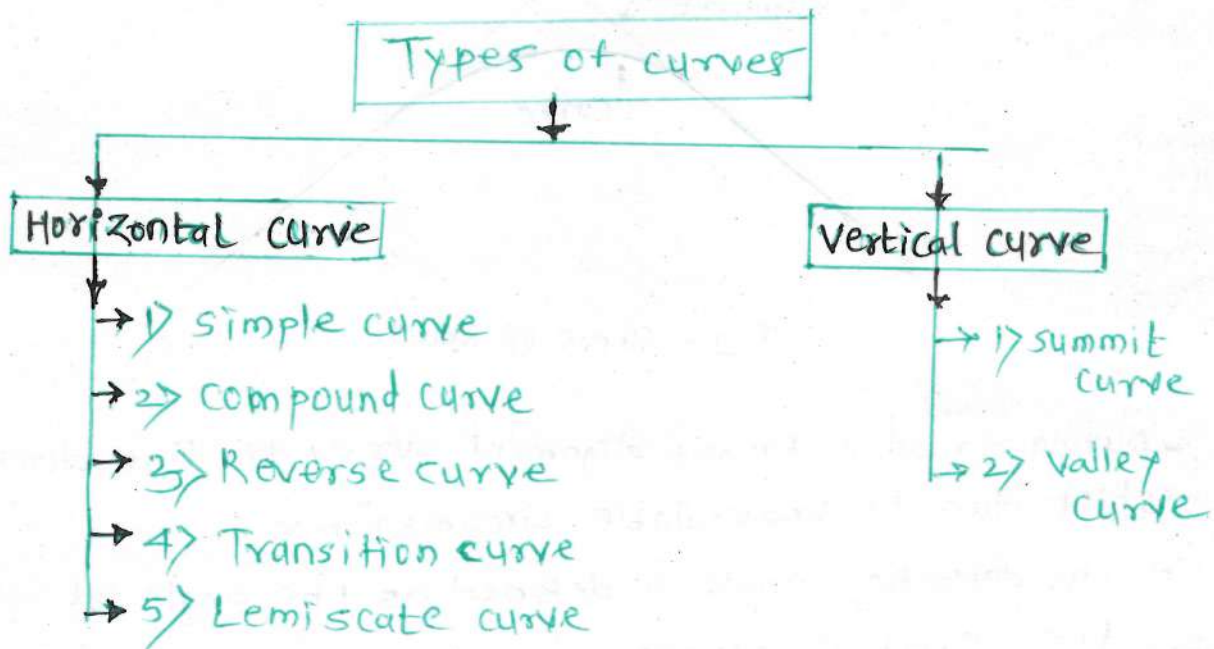 Types of curves
Horizontal curve
Vertical curve
1> simple curve
2> compound curve
3> Reverse curve
4> Transition curve
5> Lemiscate curve
1> summit
curve
2> valley
curve